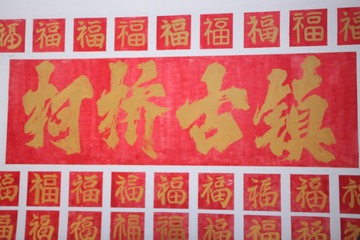 福 福 福 福 福 福 福 福 福
柯桥古鎮
福 福 福 福 福 福 福 福 福
福 福 福 福 福 福 福 福 福